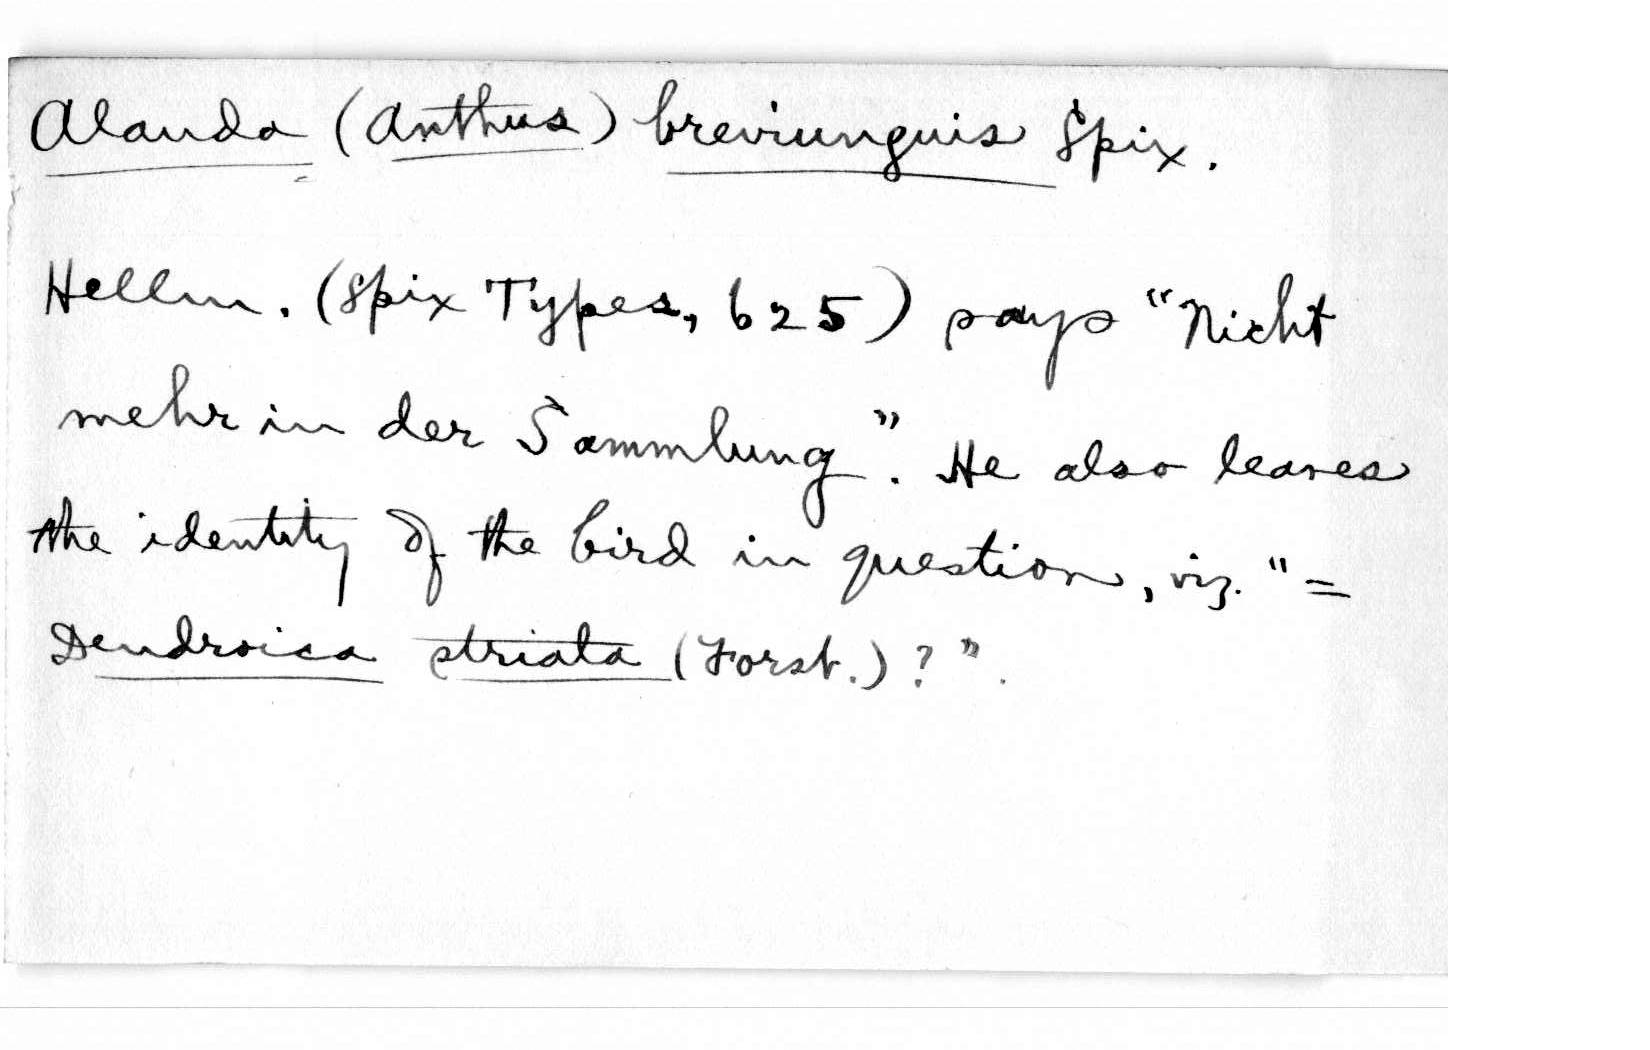 Alauda (Anthus) breviunguis Spix.
Hellm. (Spix Types, 625) says "Nicht
mehr in der Sammlung". He also leaves
the identity of the bird in question, viz. "=
Dendroica striata (Forst.)?".